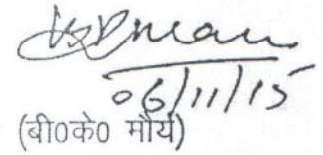 06/11/15
(बी0के0 मौर्य)